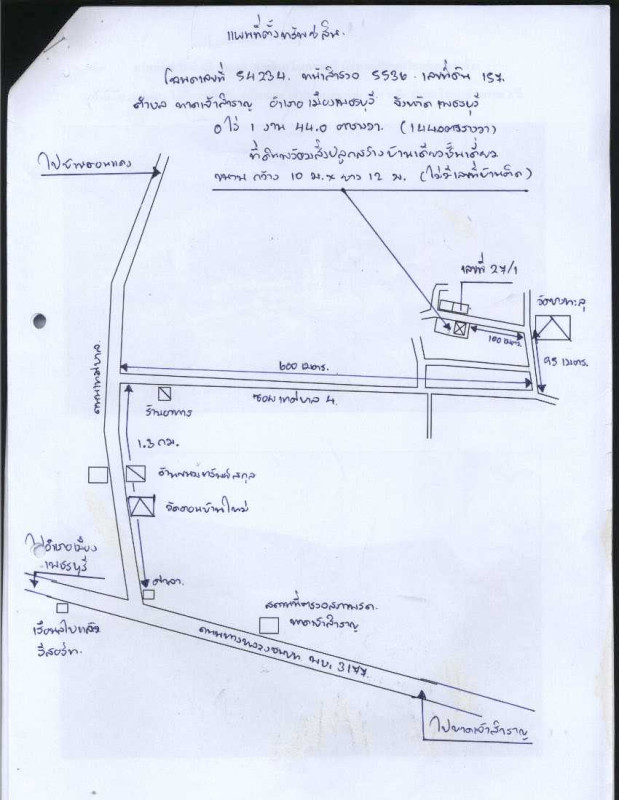 แผนที่ตั้งทรัพย์สิน.
โฉนดเลขที่ 54234. หน้าสำรวจ 5536. เลขที่ดิน 157.
ตำบล หาดเจ้าสำราญ อำเภอ เมืองเพชรบุรี จังหวัด เพชรบุรี
0 ไร่ 1 งาน 44.0 ตารางวา. (144.0ตารางวา)
ที่ดินพร้อมสิ่งปลูกสร้าง บ้านเดี่ยวชั้นเดียว
ขนาด กว้าง 10 ม. x ยาว 12 ม. (ไม่มีเลขที่บ้านติด)
เลขที่ 27/1
100 เมตร.
95 เมตร.
600 เมตร.
ถนนเทศบาล
ซอยเทศบาล 4.
ร้านอาหาร
1.3 กม.
วัดดอนบ้านใหม่
ศาลา
ไปอำเภอเมือง
เพชรบุรี
สถานที่ตรวจสภาพรถ.
หาดเจ้าสำราญ
รีสอร์ท.
ถนนทางหลวงชนบท พบ. 3177.
ไปหาดเจ้าสำราญ